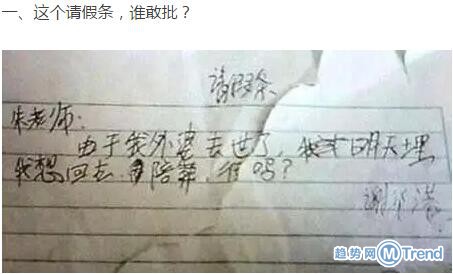 一、这个请假条，谁敢批？
请假条
朱老师:
由于我外婆去世了,我明天埋
我想回去陪葬.行吗?
谢
趋势网 M Trend